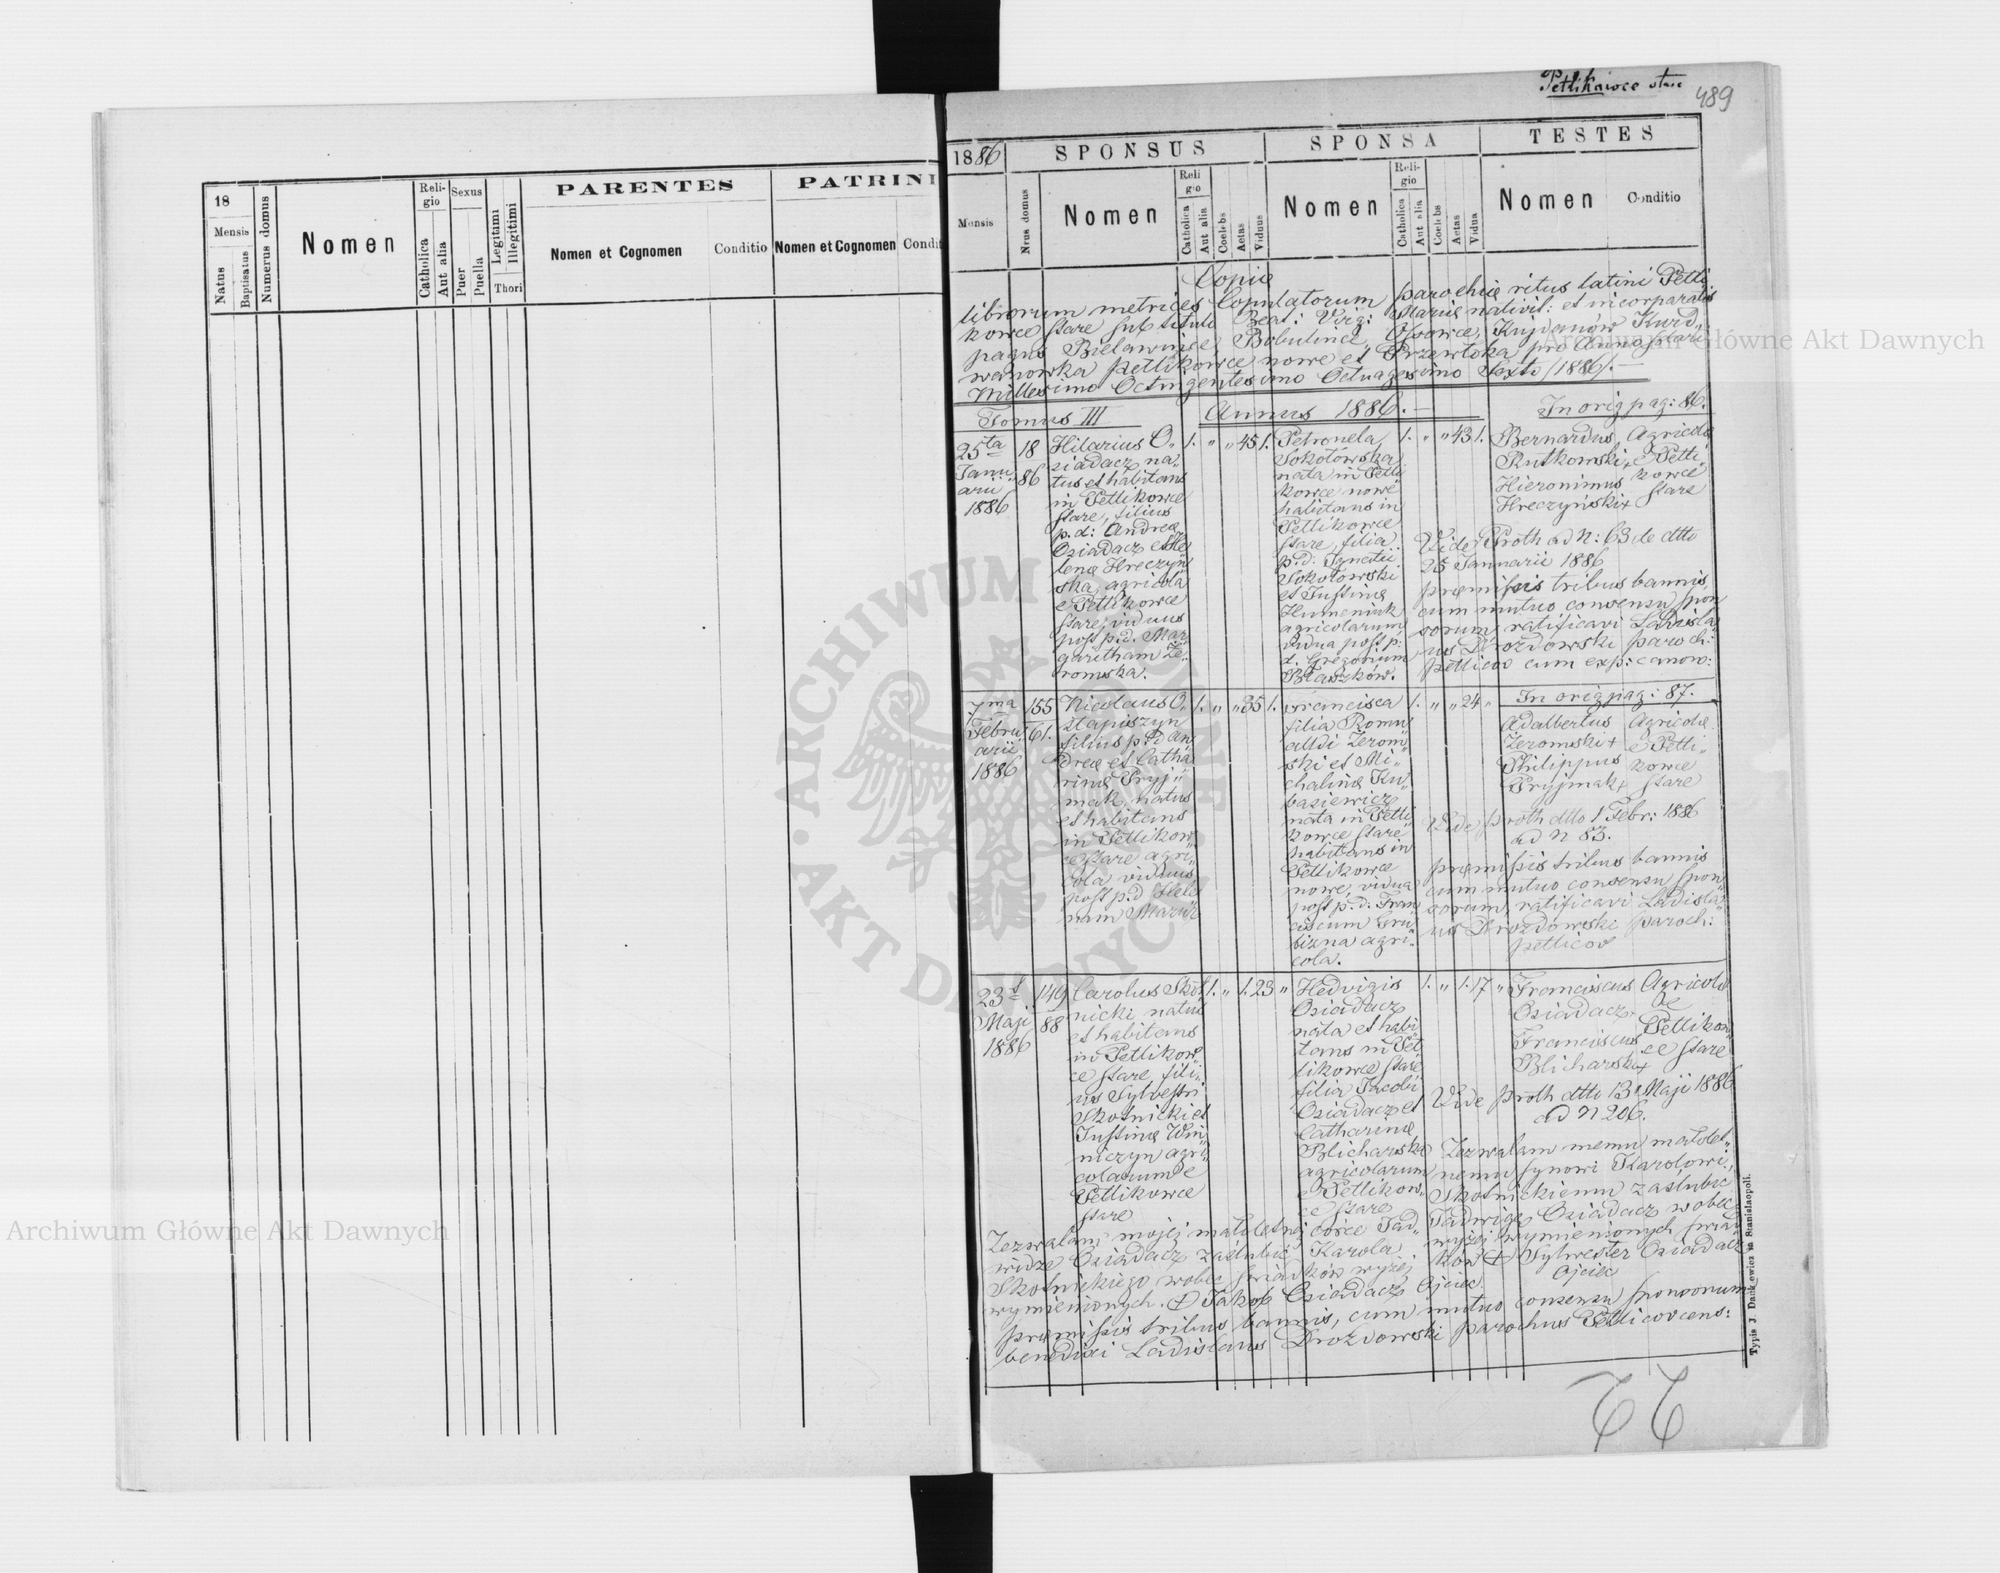 Petlikowce stare
489
18
Mensis
Natus
Baptisatus
Numerus domus
Nomen
Religio
Catholica
Aut alia
Sexus
Puer
Puella
Legitimi
Illegitimi
Thori
PARENTES
Nomen et Cognomen
Conditio
PATRINI
Nomen et Cognomen
Condit
1886
SPONSUS
SPONSA
TESTES
Mensis
Nrus domus
Nomen
Religio
Catholica
Aut alia
Coelebs
Aetas
Viduus
Nomen
Religio
Catholica
Aut alia
Coelebs
Aetas
Vidua
Nomen
Conditio
Copie
librorum metrices Copulatorum parochiæ ritus latini Petli
kowce stare sub titulo Beat: Virg: Mariæ nativit: et incorporatis
pagis Bielawince, Bobulince, Osowce, Kujdanów Kurd„
wanowka petlikowce nowe et Przewłoka pro Anno
Millesimo Octingentesimo Octuagesimo Sexto /1886/.—
Tomus III
Annus 1886.—
In orig pag: 86.
25ta
Janu
arii
1886
18
86
Hilarius O„
siadacz na„
tus et habitans
in Petlikowce
stare, filius
p.d: Andreæ
Osiadacz et He„
lenæ Hreczyń
ska, agricola
e Petlikowce
stare, viduus
post p.d. Mar„
garitham Że„
romska.
1. „ „ 45 1.
Petronela,
Sokołówska
nata in Petli
kowce nowe
habitans in
Petlikowce
stare, filia
p.d: Ignatii
Sokołowski
et Justinæ
Humeniuk
agricolarum
vidua post p.
d. Gregorium
Błaszków.
1. „ „ 43 1.
Bernardus
Rutkowski
Hieronimus
Hreczyński+
Agricolæ
e Petli
kowce
stare
Vide Proth ad N: 63 de dtto
25 Januarii 1886
præmissis tribus bannis
cum mutuo consensu spon
sorum, ratificavi Ladisla„
us Drozdowski paroch:
petlicov cum exp: canon:
7ma
Febru
arii
1886
155
61.
Nicolaus O„
stapiszyn
filius p.d An
dreæ et Catha
rinæ Pryj„
mak, natus
et habitans
in Petlikow„
ce stare agri„
cola, viduus
post p.d Hele
nam Mazur
1. „ „ 35 1.
Francisca
filia Romu
aldi Żerom„
ski et Mi„
chalinæ Ku„
basiewicz
nata in Petli
kowce stare
habitans in
Petlikowce
nowe, vidua
post p.d. Fran
ciscum Gru„
bizna agri„
cola.
1. „ „ 24 „
In orig pag: 87.
Adalbertus
Żeromski+
Philippus
Pryjmak+
Agricolæ
e Petli„
kowce
stare
Vide proth dtto 1 Febr: 1886
ad N 83.
præmissis tribus bannis
cum mutuo consensu spon„
sorum, ratificavi Ladisla„
us Drozdowski paroch:
petlicov
23t
Maji
1886
149
88
Carolus Skot„
nicki natus
et habitans
in Petlikow„
ce stare, fili„
us Sylvestri
Skotnicki et
Justinæ Win„
niczyn agri„
colarum e
Petlikowce
stare
1. „ 1. 23 „
Hedvigis
Osiadacz
nata et habi
tans in Pet„
likowce stare
filia Jacobi
Osiadacz et
Catharinæ
Blicharska
agricolarum
e Petlikow„
ce stare
1. „ 1. 17 „
Franciscus
Osiadacz+
Franciscus
Blicharski+
Agricolæ
e
Petlikow
ce stare
Vide proth dtto 13 Maji 1886
ad N 206.
Zezwalam memu małolet„
nemu synowi Karolowi
Skotnickiemu zaślubić
Jadwigę Osiadacz wobec
wyżej wymienionych świad
ków + Sylwester Osiadacz
Ojciec
Zezwalam mojej małoletnej córce Jad„
widze Osiadacz zaślubić Karola
Skotnickiego wobec świadków wyżej
wymienionych. + Jakób Osiadacz Ojciec.
præmissis tribus bannis, cum mutuo consensu sponsorum
benedixi Ladislaus Drozdowski parochus Petlicovcens:
Typis J. Dankiewicz in Stanislaopoli.
Archiwum Główne Akt Dawnych
Archiwum Główne Akt Dawnych
ARCHIWUM GŁÓWNE AKT DAWNYCH